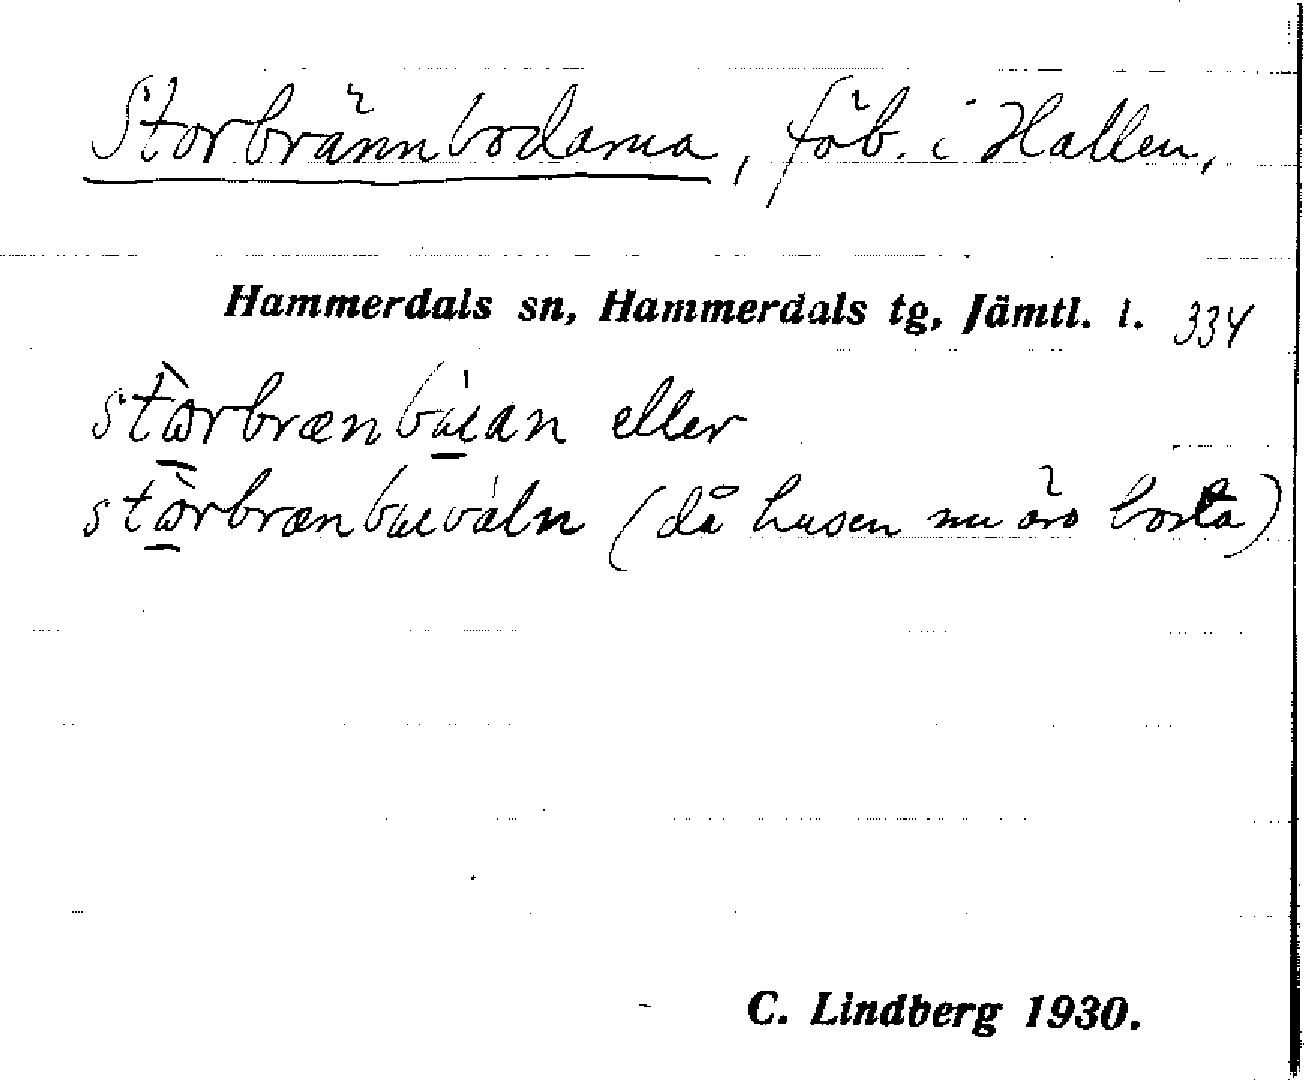 Storbrännbodarna, fäb. i Hallen,
Hammerdals sn, Hammerdals tg, Jämtl. l. 334
eller
(då husen nu äro borta)
C. Lindberg 1930.